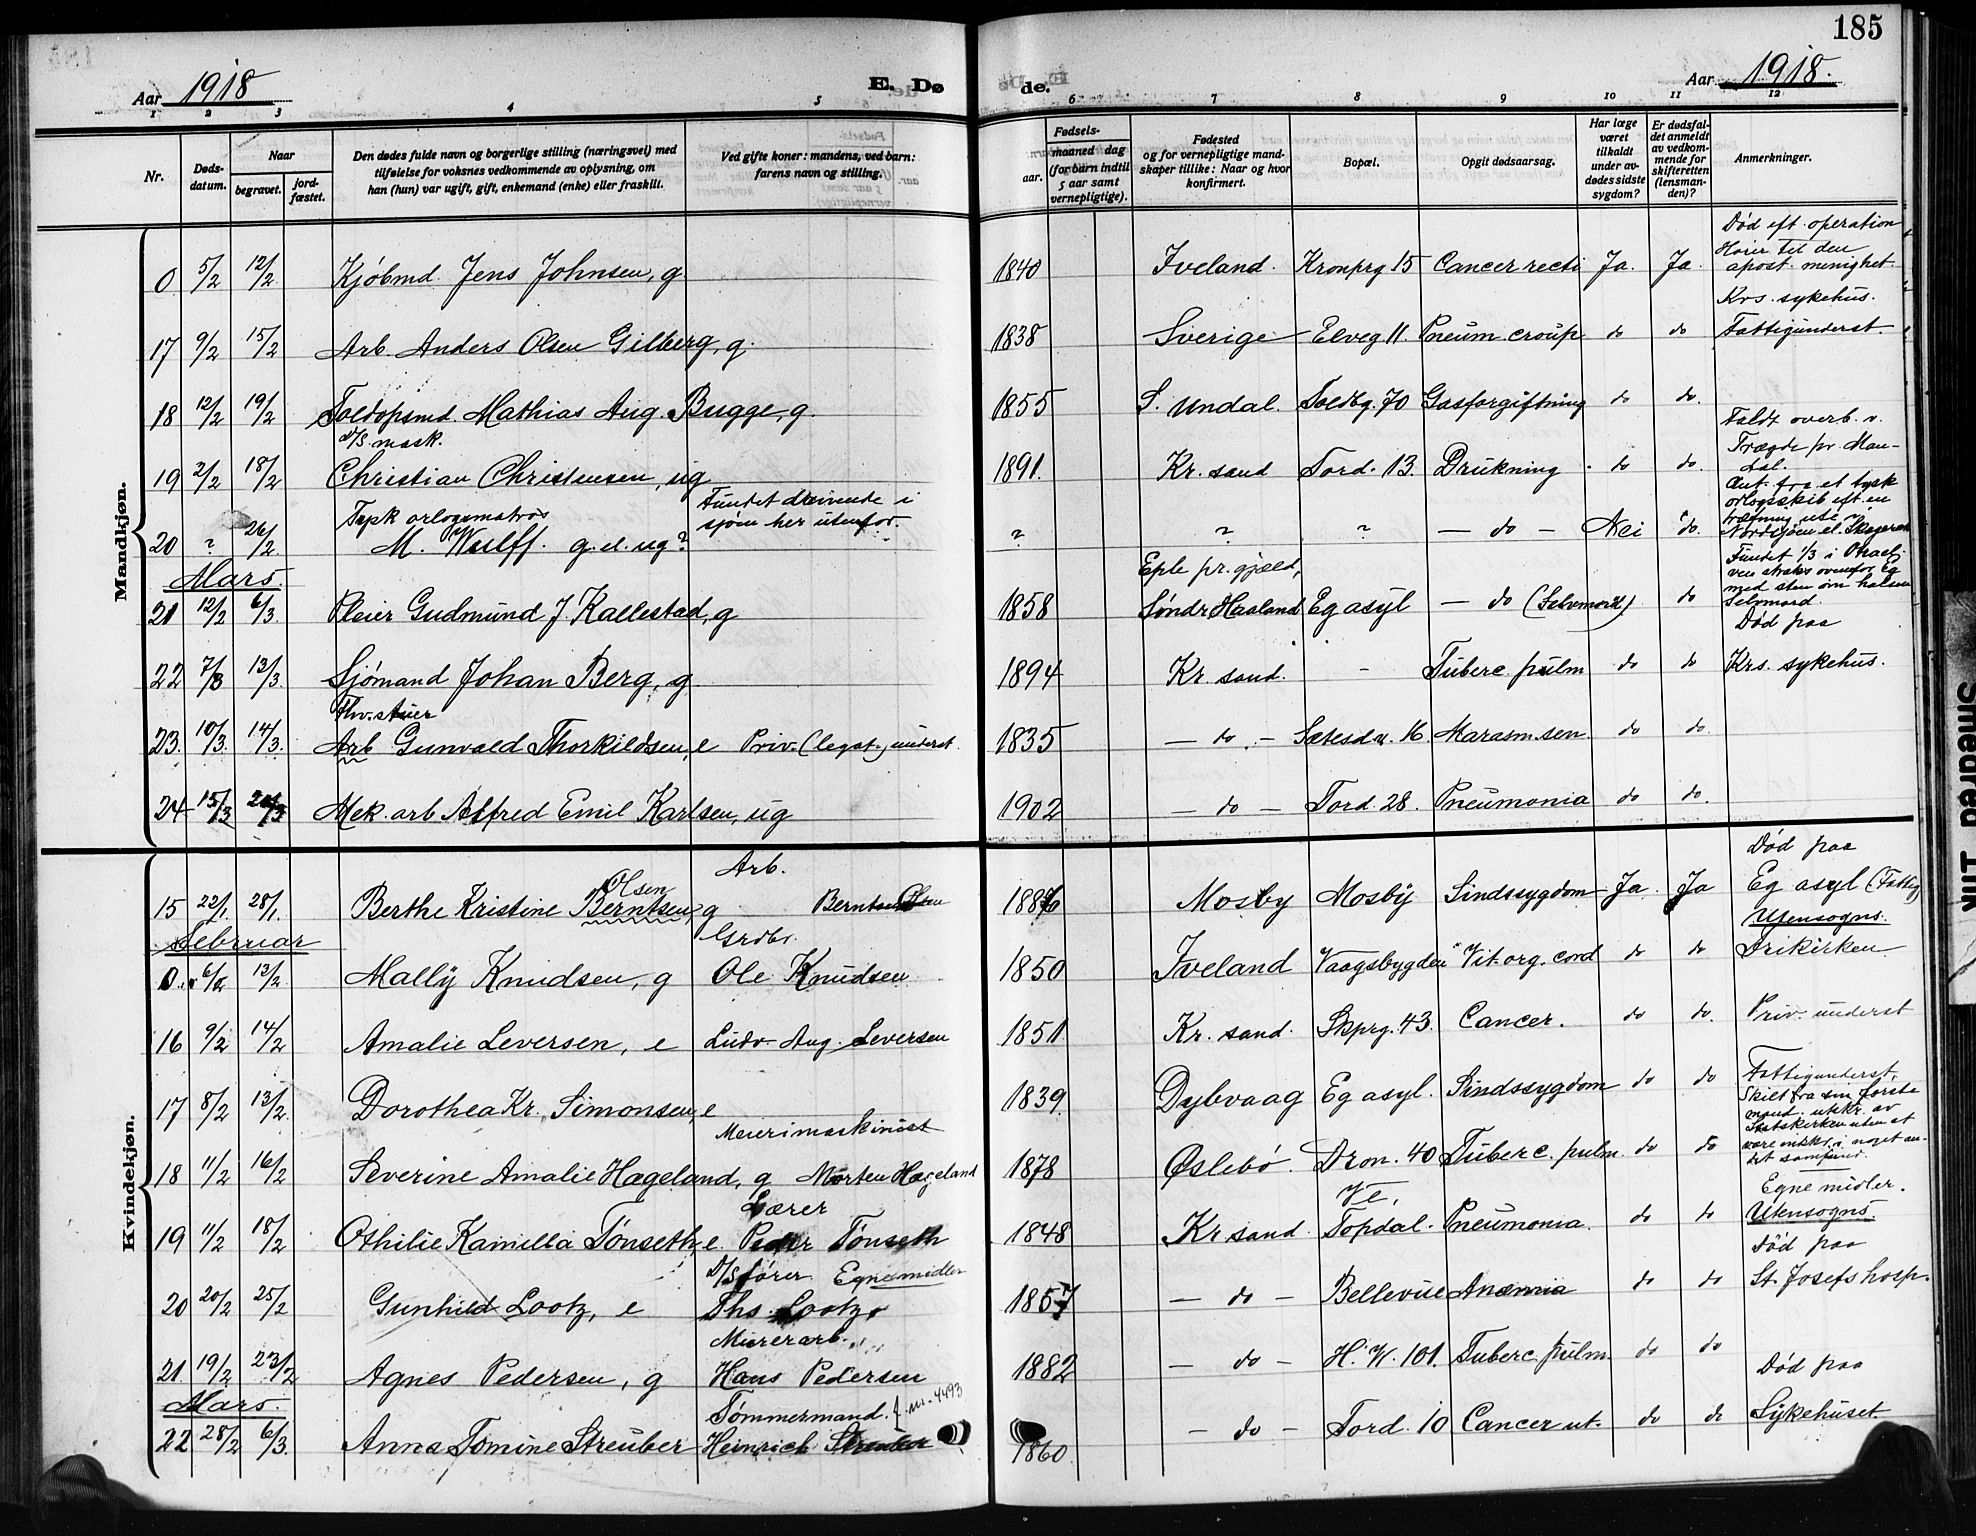 185
Aar 1918
E. Dø
de.
Aar 1918.
1 2 3 4 5 6 7 8 9 10 11 12
Nr.
Døds-
datum.
Naar
begravet.
jord-
fæstet.
Den dødes fulde navn og borgerlige stilling (næringsvei) med
tilføielse for voksnes vedkommende av oplysning, om
han (hun) var ugift, gift, enkemand (enke) eller fraskilt.
Ved gifte koner: mandens, ved barn:
farens navn og stilling.
Fødsels-
aar.
maaned dag
(for barn indtil
5 aar samt
vernepligtige).
Fødested
og for vernepligtige mand-
skaper tillike: Naar og hvor
konfirmert.
Bopæl.
Opgit dødsaarsag.
Har læge
været
tilkaldt
under av-
dødes sidste
sygdom?
Er dødsfal-
det anmeldt
av vedkom-
mende for
skifteretten
(lensman-
den)?
Anmerkninger.
Mandkjøn.
Død eft. operation
Hører til den
0 5/2 12/2 Kjøbmd. Jens Johnsen, g 1840 Iveland. Kronprg 15 Cancer recti Ja. Ja. apost. menighet.
Krs. sykehus.
17 9/2 15/2 Arb. Anders Olsen Gilberg, g. 1838 Sverige Elveg 11. Pneum. croup do do Fattigunderst.
18 12/2 19/2 Toldopsmd. Mathias Aug. Bugge, g. 1855 S. Undal. Toldbg. 70 Gasforgiftning do do.
D/S mask.
Faldt overb. v.
Trægde pr. Man-
dal.
19 2/2 18/2 Christian Christensen, ug 1891. Kr. sand Tord. 13. Drukning do do.
Tysk orlogsmatros
Fundet drivende i
sjøen her utenfor.
20 ? 26/2 M. Wulff. g. el. ug? ? ? ? — do — Nei do.
Ant. fra et tysk
orlogsskib eft. en
træfning ute i
Nordsjøen el. Skagerak
Mars.
Eple pr. gjæld,
21 12/2 6/3 Pleier Gudmund J. Kallestad, g 1858 Søndr Haaland Eg asyl — do (Selvmord) do
Fundet 1/3 i Otrael-
ven straks ovenfor Eg
med sten om halsen
Selvmord.
Død paa
22 7/3 13/3 Sjømand Johan Berg, g 1894 Kr. sand. - Tuberc. pulm do do Krs. sykehus.
23 10/3. 14/3. Arb Gunvald Thorkildsen, e Priv. (legat.) underst. 1835 — do — Sætesd. v. 16. Marasm. sen. do do.
24 15/3 Mek. arb Alfred Emil Karlsen, ug 1902 — do — Tord. 28. Pneumonia do do.
Kvindekjøn.
Arb.
Død paa
Olsen
15 22/1. 28/1. Berthe Kristine Berntsen, g Berntsen Olsen Mosby Mosby Sindssygdom Ja. Ja Eg asyl (Fattig
Utensogns.
Februar
Grdbr.
0. 6/2 12/2. Mally Knudsen, g Ole Knudsen 1850 Iveland Vaagsbygden Vit. org. cord do do Frikirken
16 9/2 14/2 Amalie Leversen, e Ludv. Aug. Leversen 1851 Kr. sand. Skprg. 43. Cancer. do do. Priv. underst
17 8/2 13/2. Dorothea Kr. Simonsen, e 1839 Dybvaag Eg asyl. Sindssygdom do do Fattigunderst.
Meierimaskinist
Skilt fra sin første
mand. utskr. av
Statskirken uten at
være indskr. i noget an-
det samfund.
18 11/2 16/2 Severine Amalie Hageland, g Morten Hageland 1878 Øslebø. Dron. 40 Tuberc. pulm. do do
Lærer
Ve,
Egne midler.
19 11/2 18/2 Othilie Kamilla Tønseth, e. Peder Tønseth 1848 Kr sand. Topdal. Pneumonia. do do Utensogns.
D/S fører. Egne midler
Død paa
20 20/2 25/2 Gunhild Lootz, e Ths. Lootz, 1857 — do — Bellevue Anæmia do do St. Josefs hosp.
Murerarb.
21 19/2 23/2 Agnes Pedersen, g Hans Pedersen 1882 — do — H. W. 101. Tuberc. pulm. do do
Mars.
Tømmermand. f. nr. 4493
Død paa
22 28/2 6/3. Anna Tomine Streuber Heinrich Streuber 1860 — do — Tord. 10 Cancer ut. do do Sykehuset.